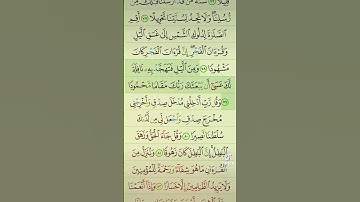 قَبْلَكَ مِن
رُّسُلِنَا وَلَا تَجِدُ لِسُنَّتِنَا تَحْوِيلًا ٧٧ أَقِمِ
الصَّلَوٰةَ لِدُلُوكِ الشَّمْسِ إِلَىٰ غَسَقِ الَّيْلِ
وَقُرْءَانَ الْفَجْرِ إِنَّ قُرْءَانَ الْفَجْرِ كَانَ
مَشْهُودًا ٧٨ وَمِنَ الَّيْلِ فَتَهَجَّدْ بِهِ نَافِلَةً
لَّكَ عَسَىٰ أَن يَبْعَثَكَ رَبُّكَ مَقَامًا مَّحْمُودًا
٧٩ وَقُل رَّبِّ أَدْخِلْنِي مُدْخَلَ صِدْقٍ وَأَخْرِجْنِي
مُخْرَجَ صِدْقٍ وَاجْعَل لِّي مِن لَّدُنكَ
سُلْطَٰنًا نَّصِيرًا ٨٠ وَقُلْ جَاءَ الْحَقُّ وَزَهَقَ
الْبَٰطِلُ إِنَّ الْبَٰطِلَ كَانَ زَهُوقًا ٨١ وَنُنَزِّلُ مِنَ
الْقُرْءَانِ مَا هُوَ شِفَاءٌ وَرَحْمَةٌ لِّلْمُؤْمِنِينَ
وَلَا يَزِيدُ الظَّٰلِمِينَ إِلَّا خَسَارًا ٨٢ وَإِذَا أَنْعَمْنَا